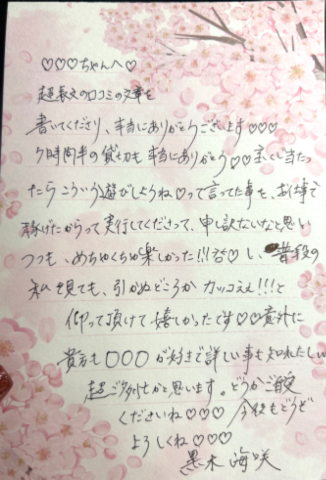 ♡♡♡ちゃんへ♡
超長文の口コミの文章を
書いてくださり、本当にありがとうございます♡♡♡
7時間半の貸切も本当にありがとう♡♡宝くじ当たっ
たらこういう遊びしようね♡って言ってた事を、お仕事で
稼げたからって実行してくださって、申し訳ないなと思い
つつも、めちゃくちゃ楽しかった!!!し、普段の
私現ても、引かぬどころかカッコええ!!!と
仰って頂けて嬉しかったです♡♡意外に
貴方も〇〇〇が好きで詳しい事も知れたしぃ
超ご馳走かと思います。どうかご自愛
くださいね♡♡♡ 今後もどうぞ
よろしくね♡♡♡
黒木 海咲